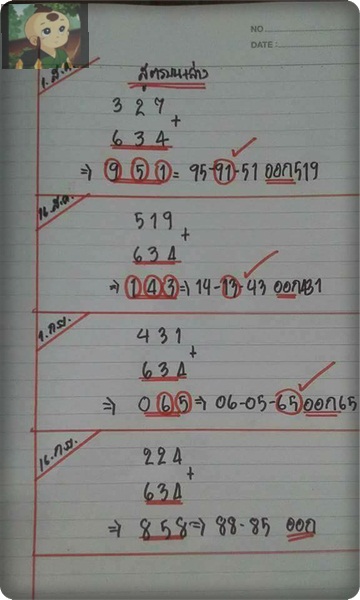 NO
DATE :
1. ส.ค. สูตรบน+ล่าง
327
+
634
⇒ 951 = 95-91-51 ออก519
16 ส.ค.
519
+
634
⇒ 143 ⇒ 14-13-43 ออก431
1. กย.
431
+
634
⇒ 065 ⇒ 06-05-65 ออก65
16. กย.
224
+
634
⇒ 858 ⇒ 88-85 ออก